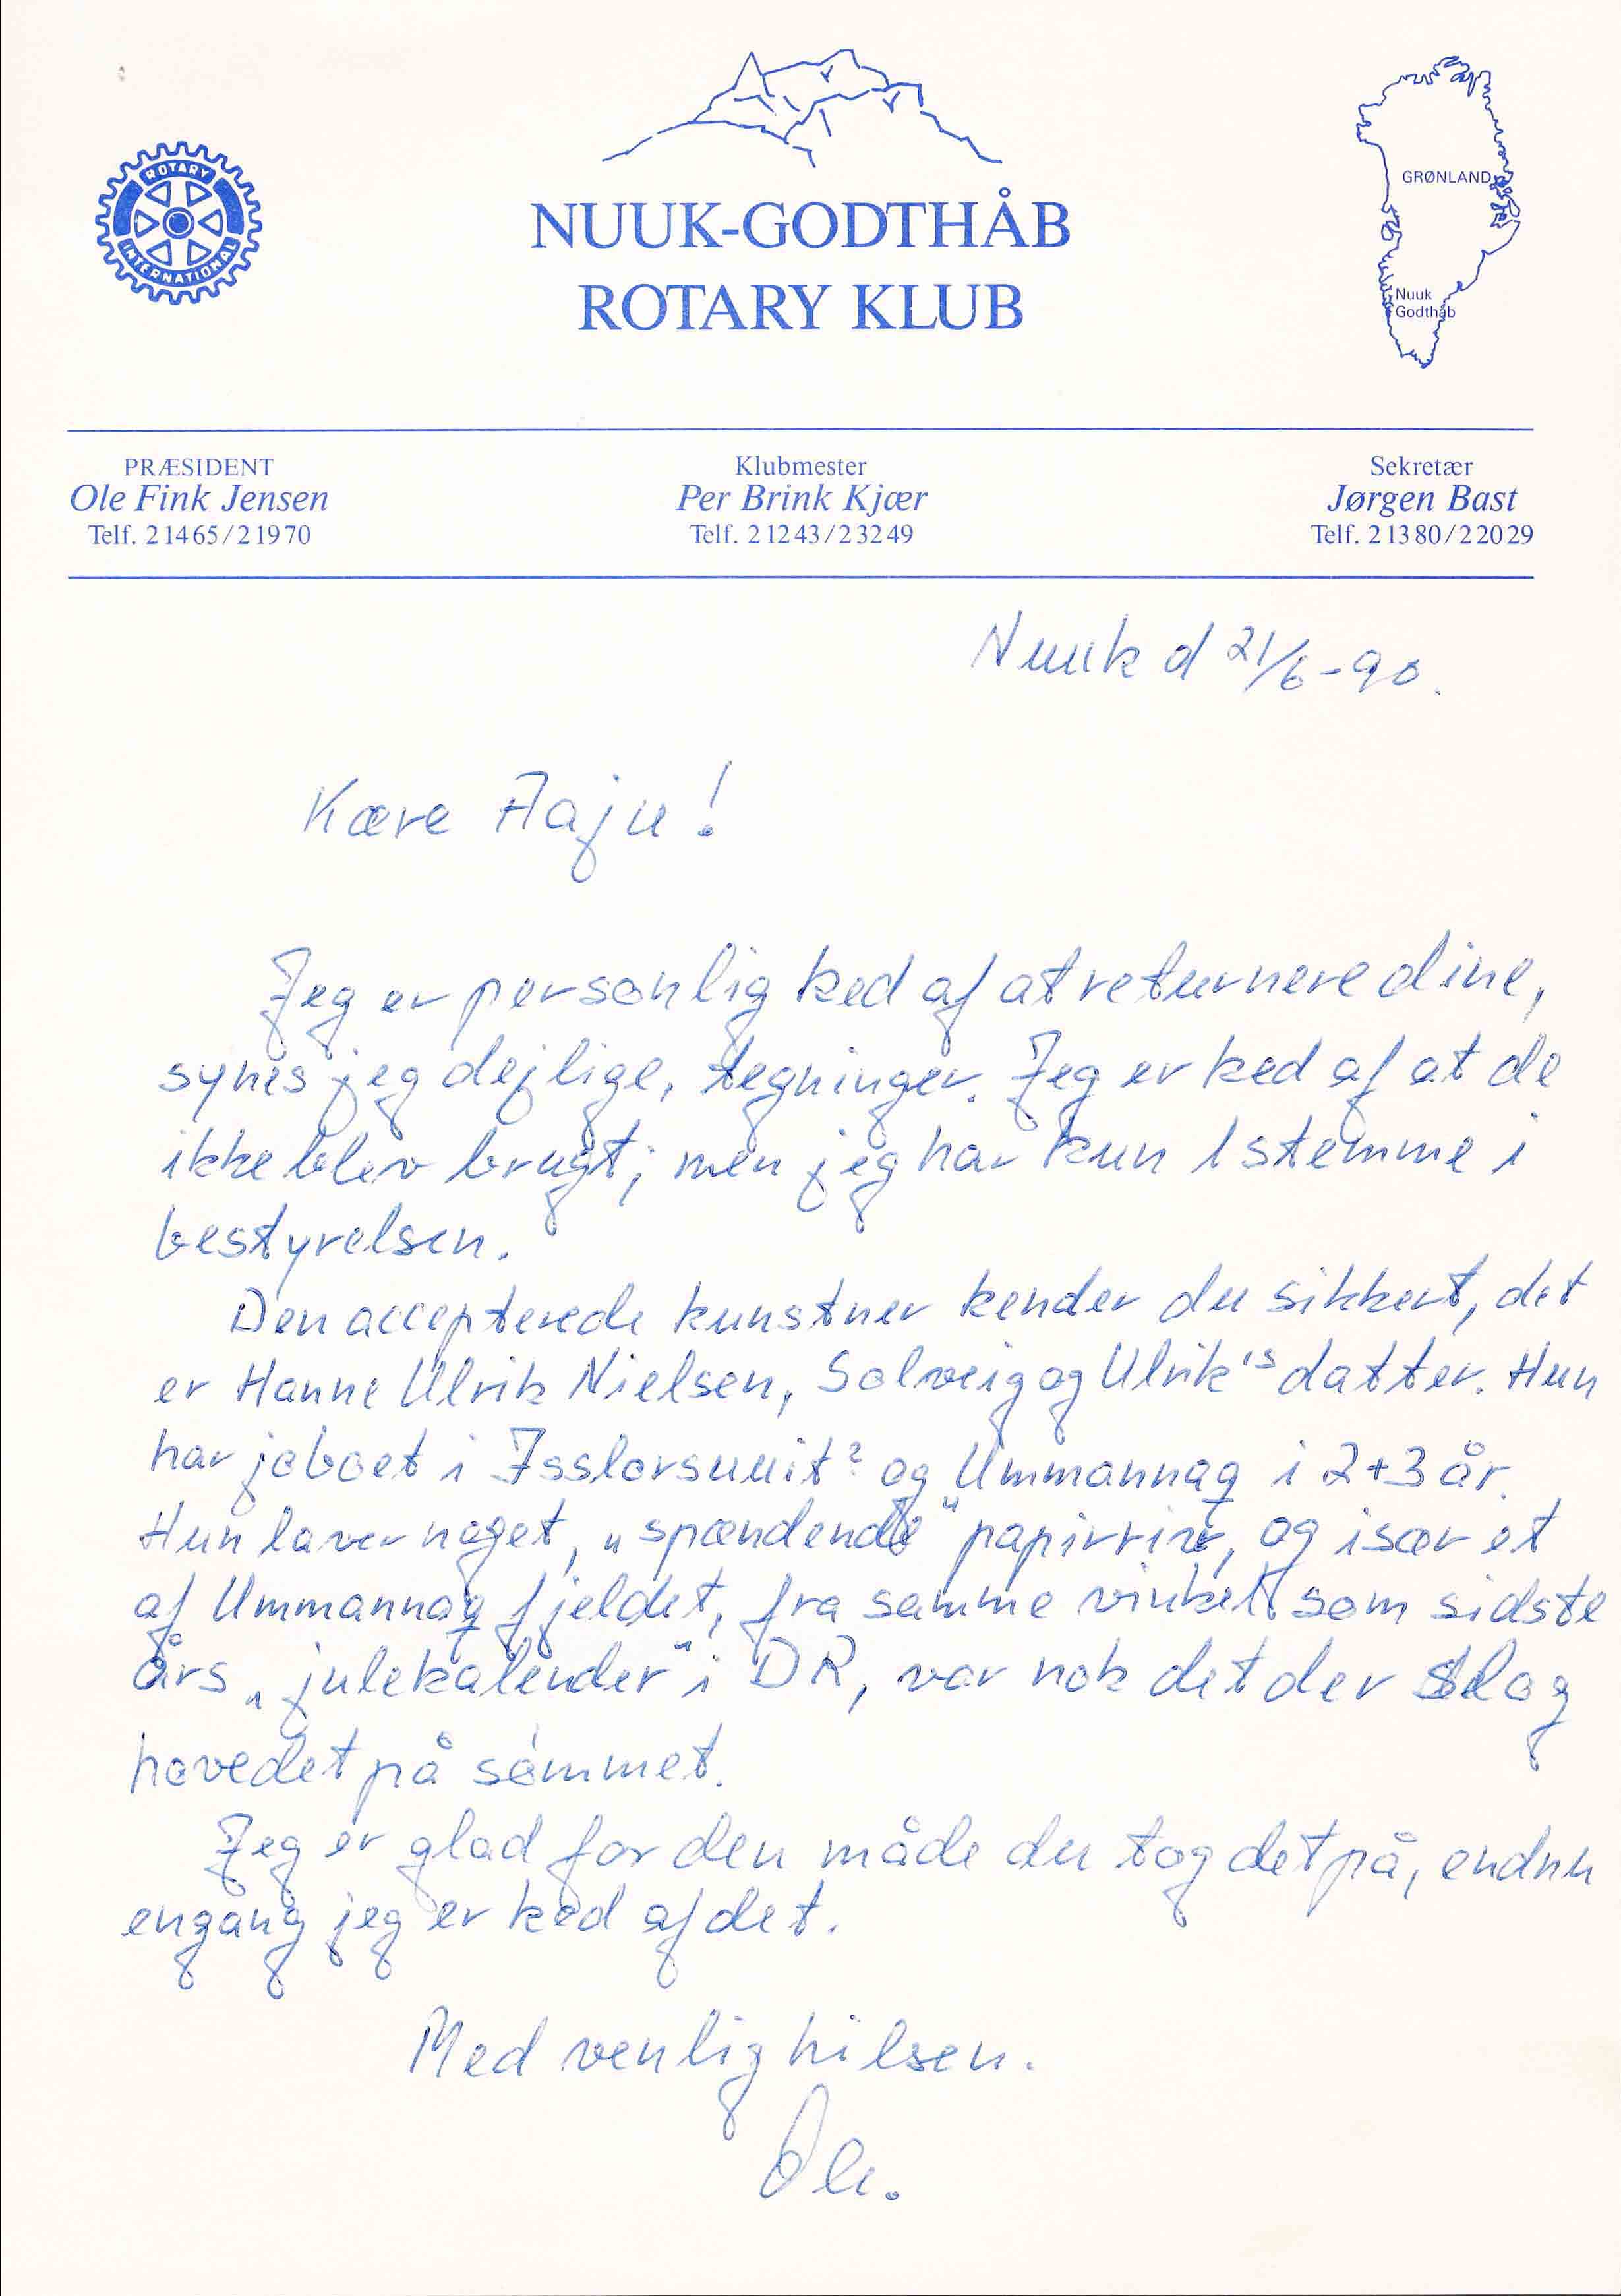 ROTARY
INTERNATIONAL
NUUK-GODTHÅB
ROTARY KLUB
GRØNLAND
Nuuk
Godthåb
PRÆSIDENT
Ole Fink Jensen
Telf. 21465/21970
Klubmester
Per Brink Kjær
Telf. 21243/23249
Sekretær
Jørgen Bast
Telf. 21380/22029
Nuuk d 21/6-90.
Kære Aaju!
Jeg er personlig ked af at returnere dine,
synes jeg dejlige, tegninger. Jeg er ked af at de
ikke blev brugt; men jeg har kun 1 stemme i
bestyrelsen.
Den accepterede kunstner kender du sikkert, det
er Hanne Ulrik Nielsen, Solveig og Ulrik's datter. Hun
har jo boet i Isslorsuuit? og Ummannaq i 2+3 år.
Hun laver noget, „spændende“ papirriv, og især et
af Ummannaq fjeldet, fra samme vinkel som sidste
års „julekalender“ i DR, var nok det der slog
hovedet på sømmet.
Jeg er glad for den måde du tog det på, endnu
engang jeg er ked af det.
Med venlig hilsen.
Ole.